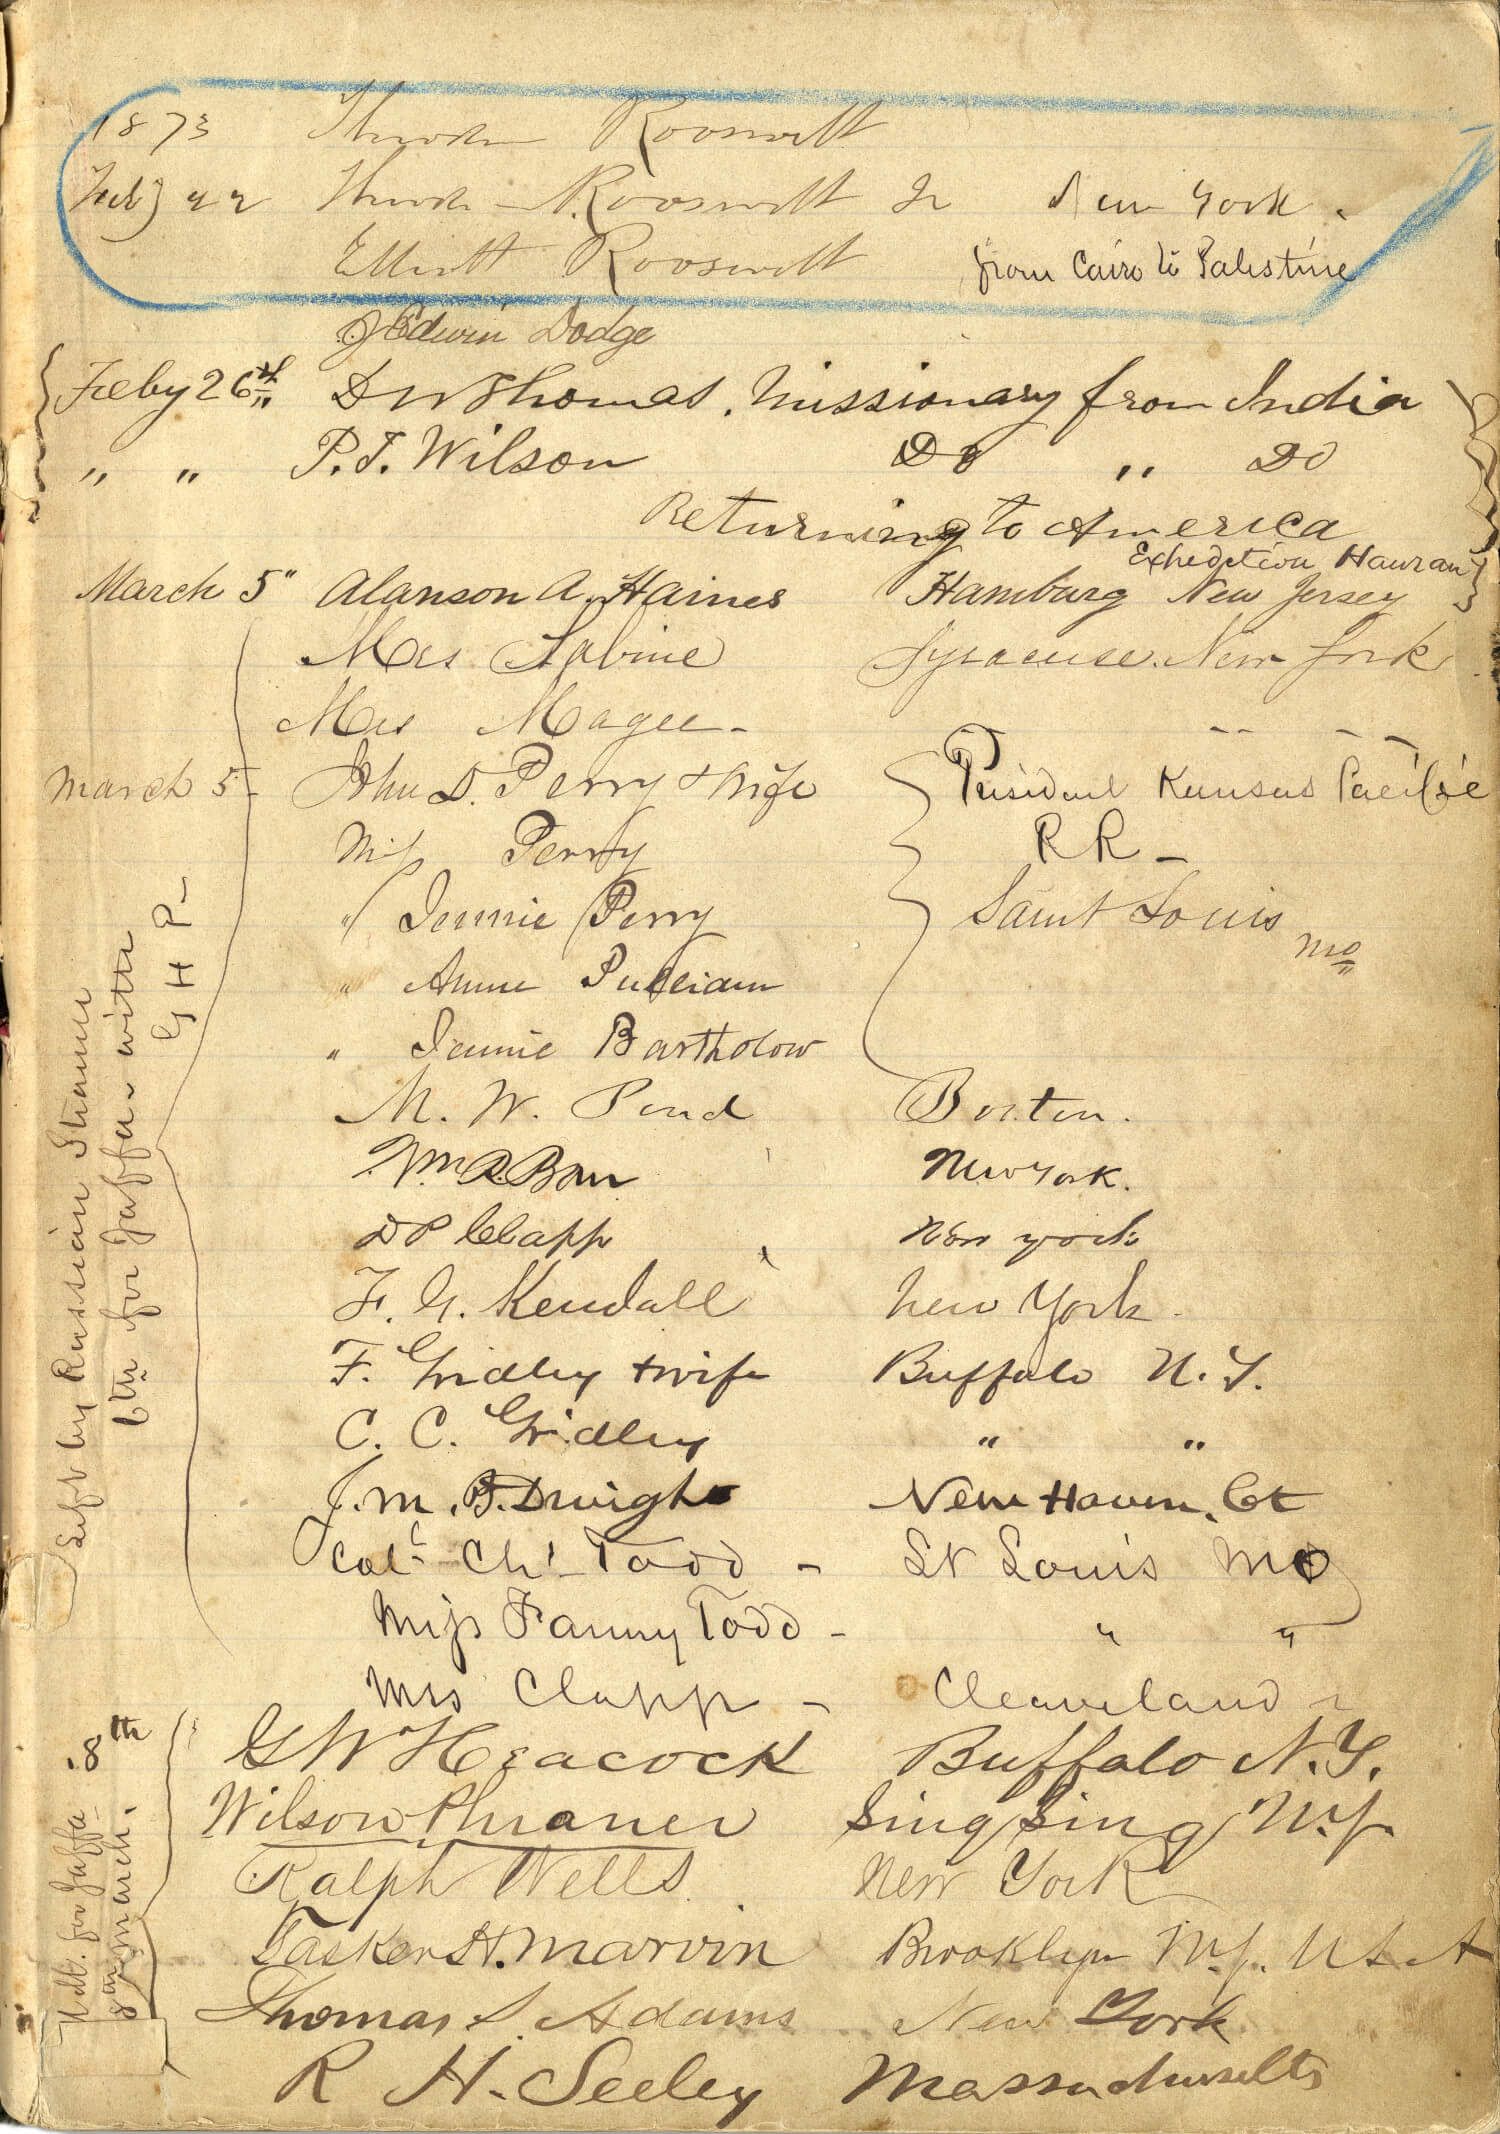 1873 Theodore Roosevelt
Feb 22 Theodore Roosevelt Jr New York
Elliott Roosevelt from Cairo to Palestine
J Edwin Dodge
Feby 26th D W Thomas, Missionary from India
" " P. T. Wilson Do " Do
Returning to America
Expedition Hauran
March 5" Alanson A. Haines Hamburg New Jersey
Mrs Sabine Syracuse. New York
Mrs Magee - " " " "
March 5 - John D. Perry & Wife President Kansas Pacific
Miss Perry R R -
" Jennie Perry Saint Louis
Mo
" Annie Pulliam
" Jennie Bartholow
M. W. Pond Boston.
Wm A. New York.
D P Clapp New York
F. G. Kendall New York -
F. Gridley & wife Buffalo N. Y.
C. C. Gridley " "
J. M. B. Dwight New Haven, Ct
Col - Chs - Todd - St Louis Mo
Miss Fanny Todd - " "
Mrs Clapp - Cleaveland -
G W Heacock Buffalo N. Y.
Wilson Phraner Sing Sing N. Y.
Ralph Wells New York
Tasker H. Marvin Brooklyn N. Y. U S A
Thomas S. Adams New York
R H. Seeley Massachusetts
Left by Russian Steamer
6th for Jaffa - with
G H P -
for Jaffa - 8th
8th March.